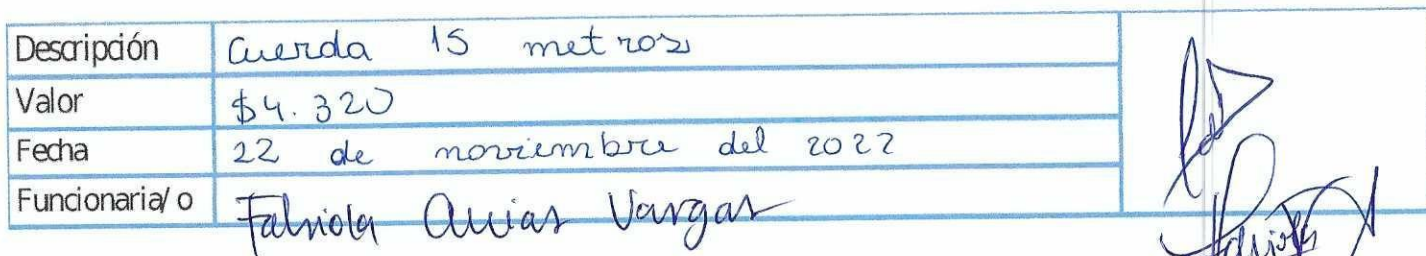 Descripción Cuerda 15 metros
Valor $4.320
Fecha 22 de noviembre del 2022
Funcionaria/o Fabiola Arias Vargas